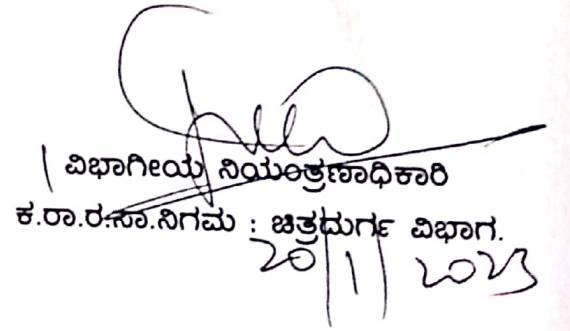 ವಿಭಾಗೀಯ ನಿಯಂತ್ರಣಾಧಿಕಾರಿ
ಕ.ರಾ.ರ.ಸಾ.ನಿಗಮ : ಚಿತ್ರದುರ್ಗ ವಿಭಾಗ.
20/1/2023